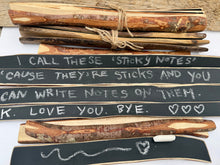 I CALL THESE 'STICKY NOTES'
'CAUSE THEY'RE STICKS AND YOU
CAN WRITE NOTES ON THEM.
K. LOVE YOU. BYE. ♡♡♡